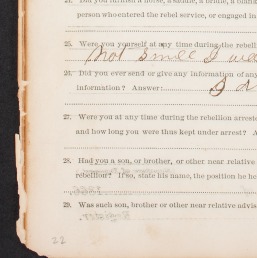 person who entered the rebel service, or engaged in
25. Were you yourself at any time during the rebellion
Not since I was
26. Did you ever send or give any information of any
information? Answer: I d
27. Were you at any time during the rebellion arreste
and how long you were thus kept under arrest? A
28. Had you a son, or brother, or other near relative
rebellion? If so, state his name, the position he he
29. Was such son, brother or other near relative advis
22